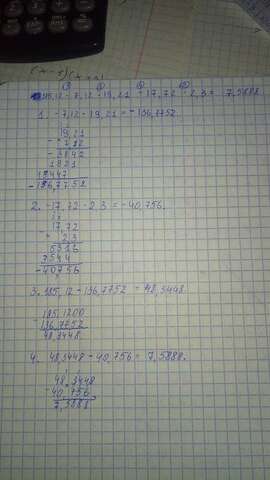 185,12 - 7,12 · 19,21 - 17,72 · 2,3 = 7,5888
1. -7,12 · 19,21 = -136,7752
19,21
7,12
3842
1921
13447
-136,7752
2. -17,72 · 2,3 = -40,756.
17,72
2,3
5316
3544
-40,756
3. 185,12 - 136,7752 = 48,3448
185,1200
136,7752
48,3448
4. 48,3448 - 40,756 = 7,5888.
48,3448
-40,756
7,5888